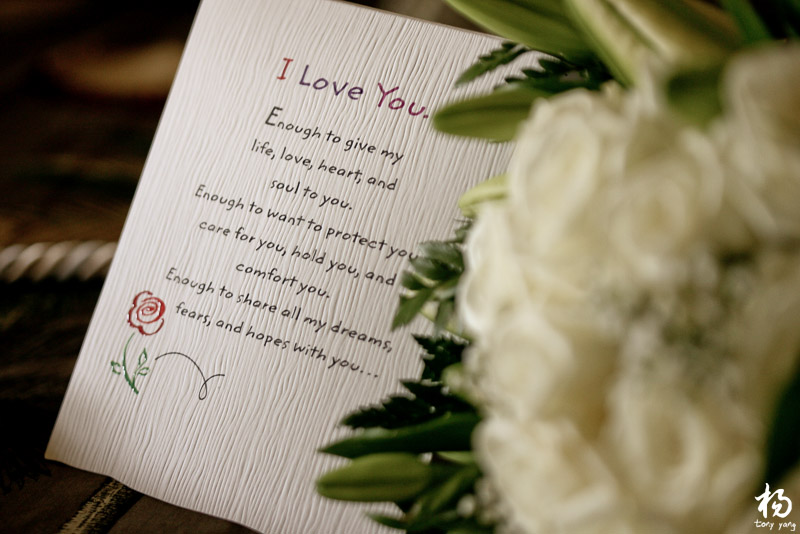 I Love You.
Enough to give my
life, love, heart, and
soul to you.
Enough to want to protect you
care for you, hold you, and
comfort you.
Enough to share all my dreams,
fears, and hopes with you...
杨
tony yang